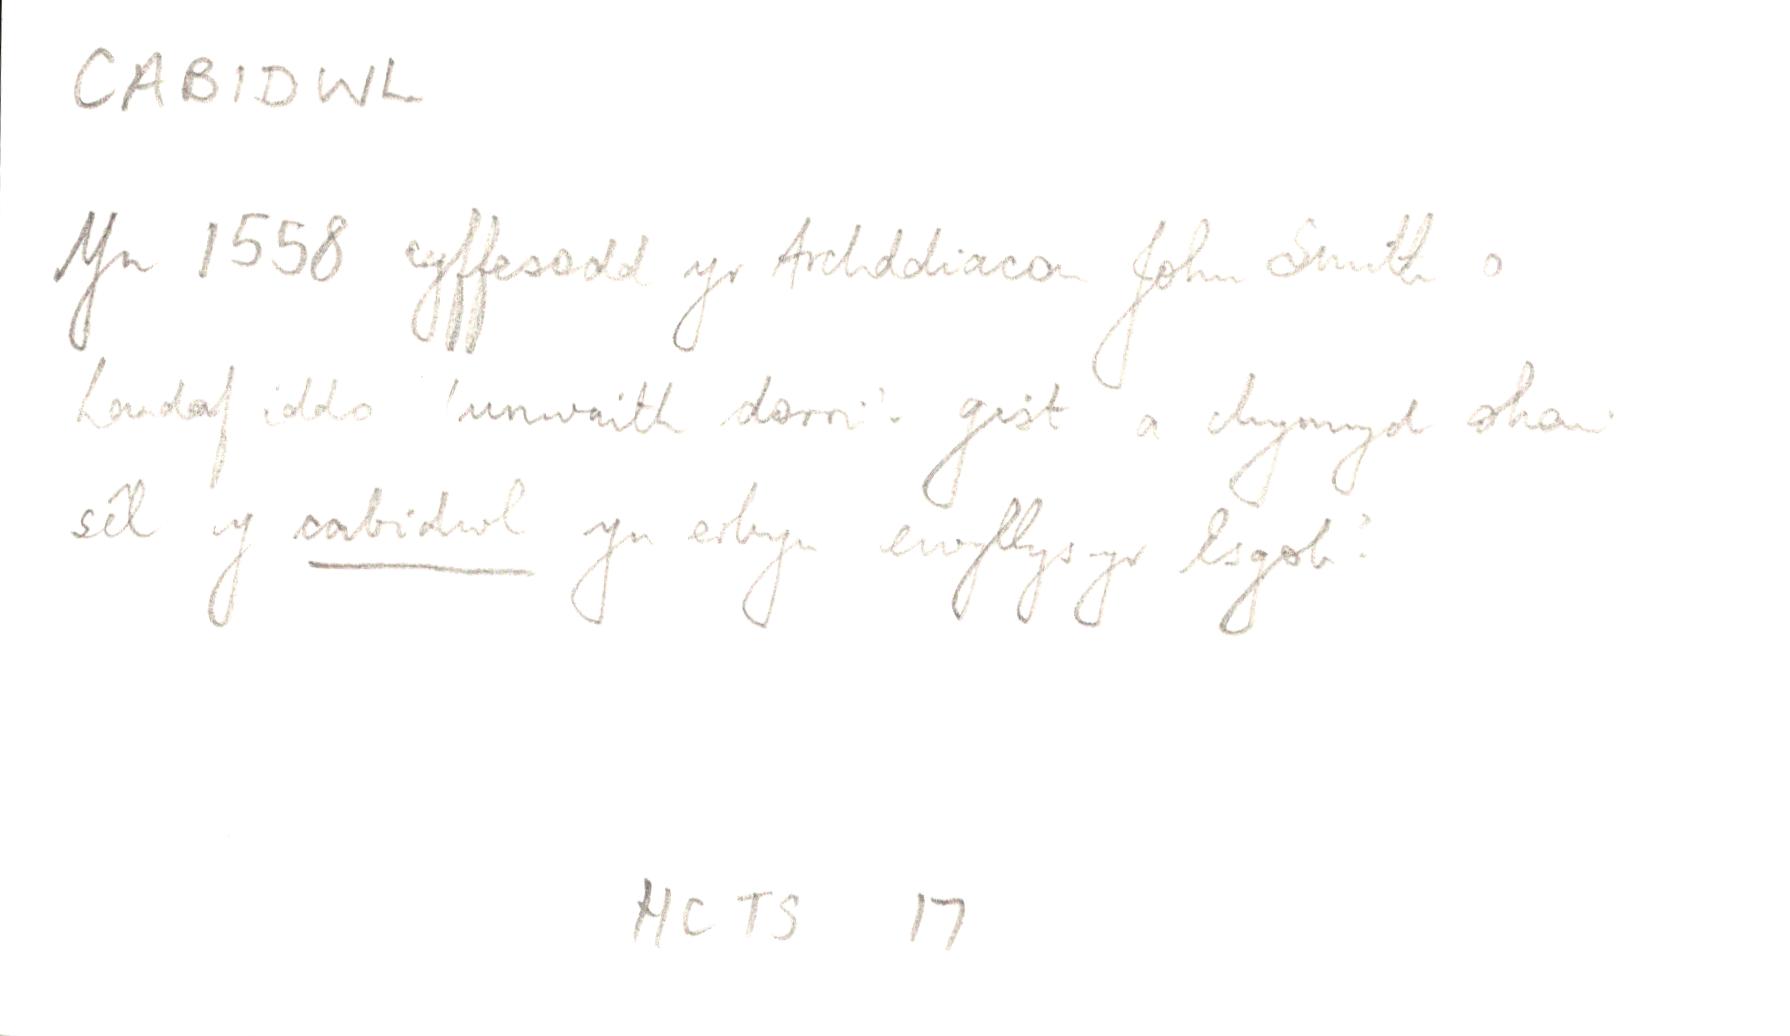 CABIDWL
Yn 1558 cyffesodd yr Archddiacon John Smith o
Landaf iddo 'unwaith dorri'r gist a chymryd ohoni
sêl y cabidwl yn erbyn ewyllys yr Esgob'.
HCTS 17